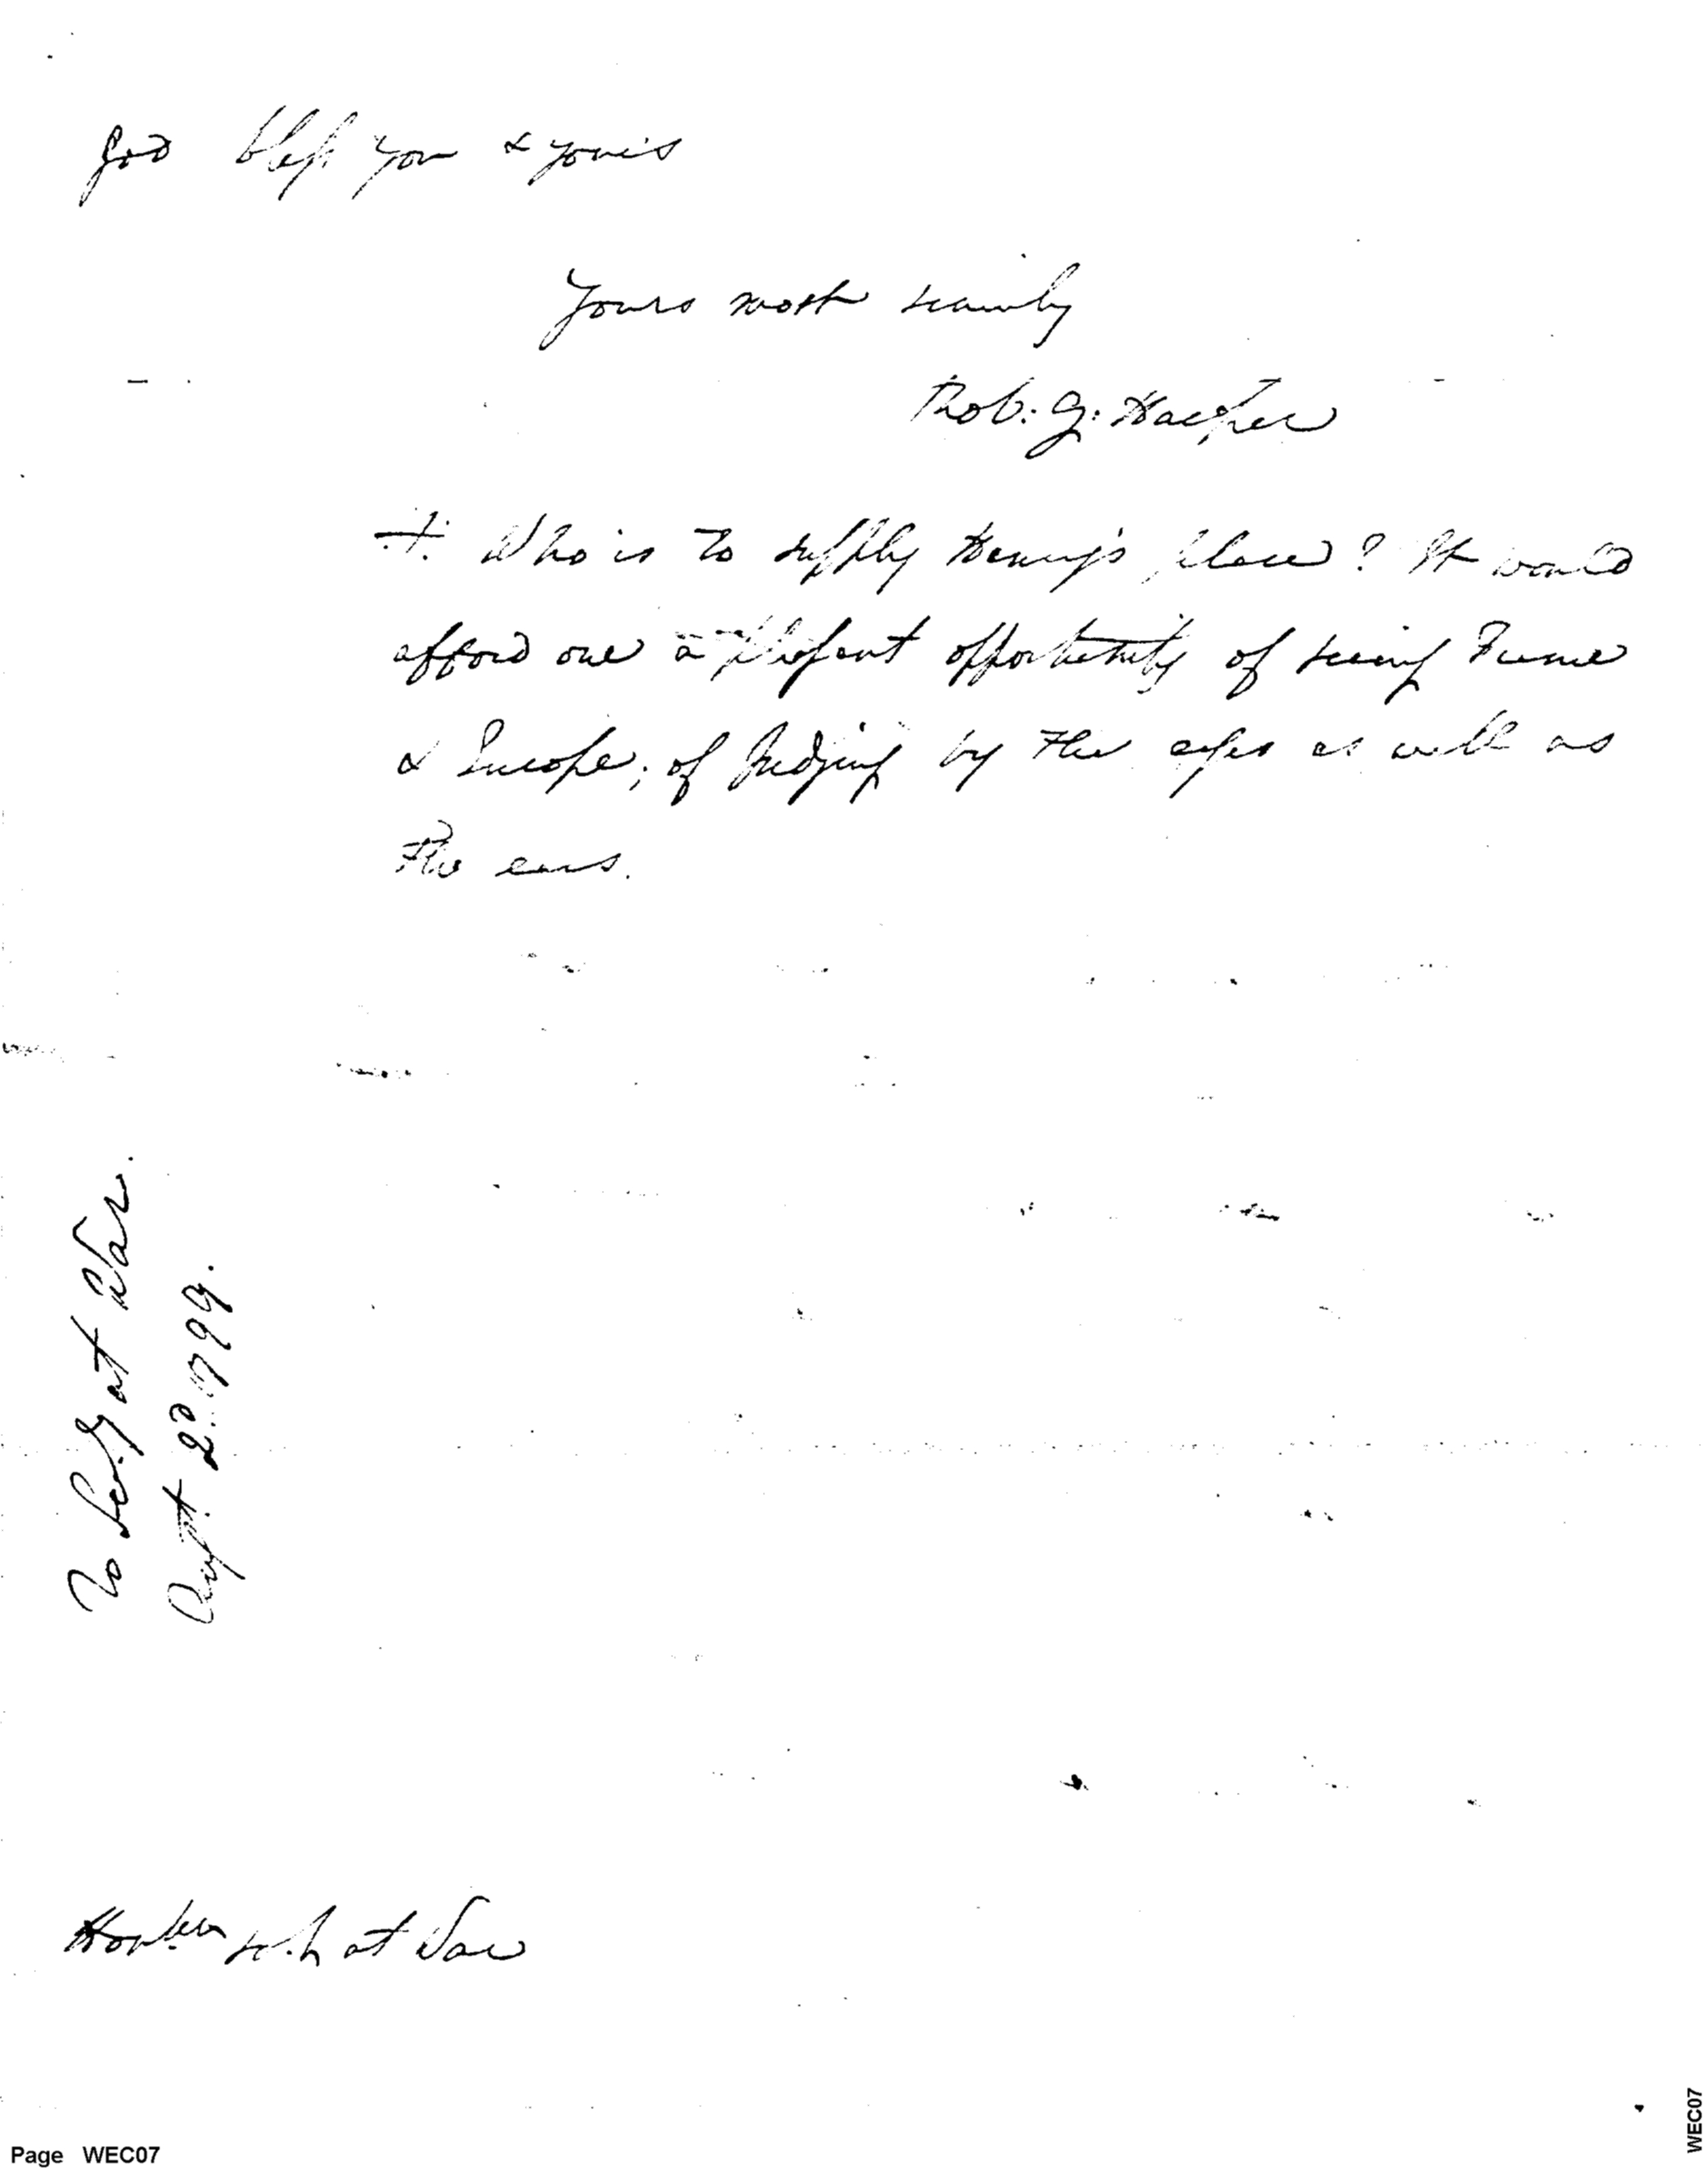 god bless you & yours
Yours most sincerely
Rob: G: Harper
+. Who is to supply Henry's place? It would
afford one a pleasant opportunity of seeing France
& Europe; of judging by the eyes as well as
the ears.
To Sec.y at War.
Aug.t 2? 1799.
Hon.ble Sec.y at War
Page WEC07
WEC07